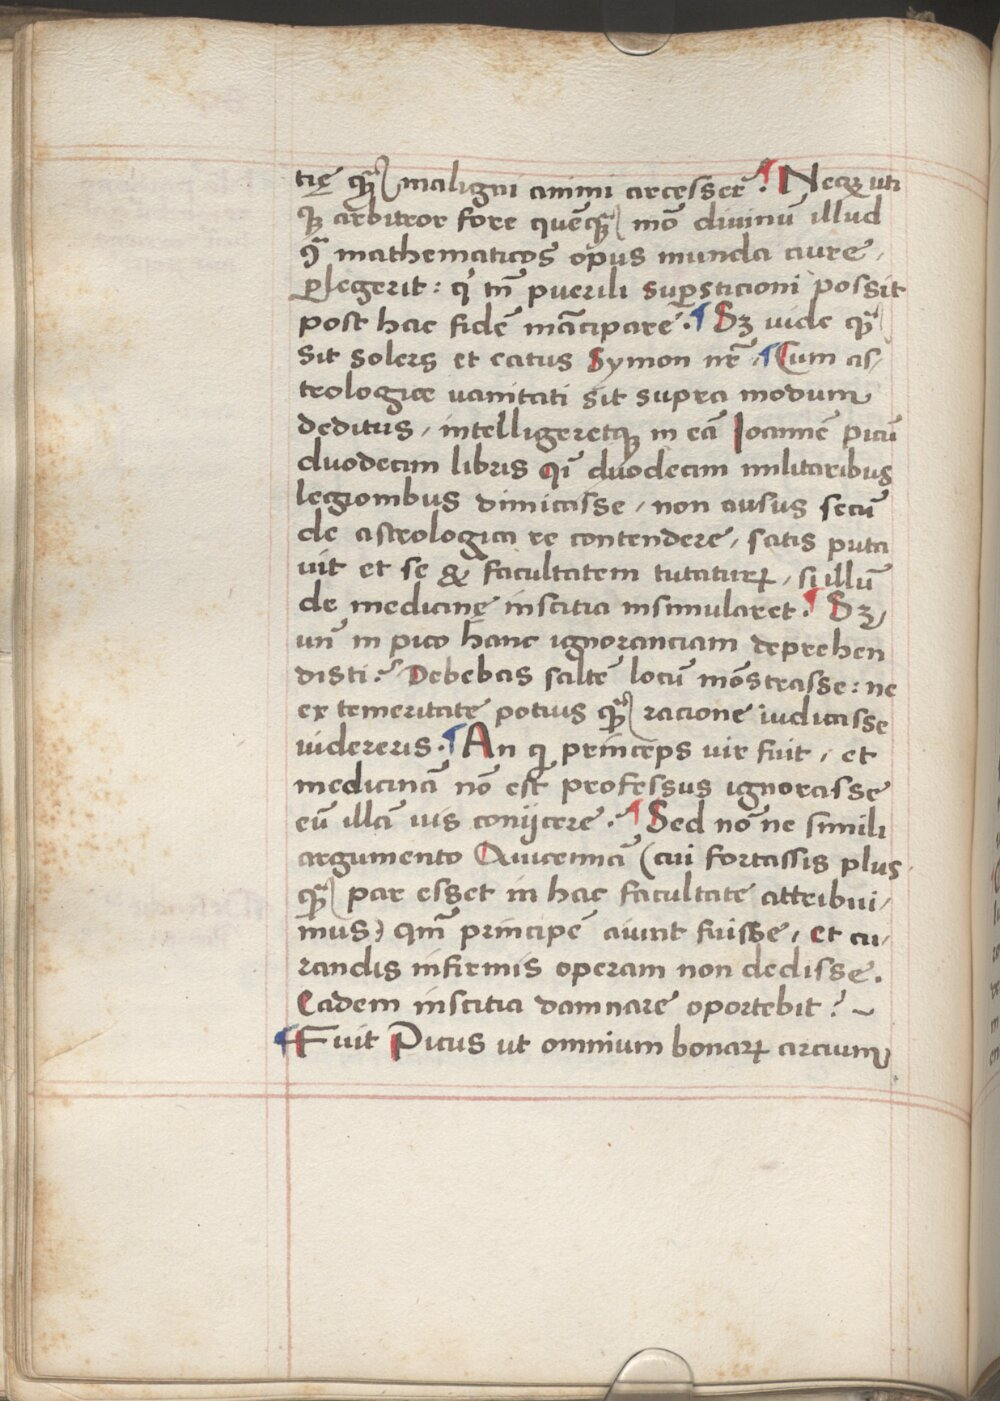 tię qᷓ maligni animi arcesser̃. ¶ Neqꝫ uti
qꝫ arbitror fore quēqᷓ mō diuinū illud
ꝯᷓ mathematicos opus munda aure,
ꝑlegerit: q' tn̄ puerili suꝑsticioni possit
post hac fidē mācipare. ¶ Sꝫ uide qᷓ
sit solers et catus Symon nr̄. ¶ Cum as/
trologicæ uanitati sit supra modum
deditus, intelligeretqꝫ in eā Ioannē picū
duodecim libris q̄i duodecim militaribus
legionibus dimicasse, non ausus secū
de astrologica re contendere, satis puta
uit et se & facultatem tutaturꝝ, si illū
de medicinę inscitia insimularet. ¶ Sꝫ,
un̄ in pico hanc ignoranciam deprehen
disti? Debebas saltē locū mōstrasse: ne
ex temeritate potius qᷓ racione iudicasse
uidereris. ¶ An q' princeps uir fuit, et
medicinā nō est professus ignorasse
eū illā uis coniijcere. ¶ Sed nō ne simili
argumento Auicennā (cui fortassis plus
qᷓ par esset in hac facultate attribui/
mus) qm̄ principē aiunt fuisse, et cu/
randis infirmis operam non dedisse.
Eadem inscitia damnare oportebit? ~
¶ Fuit Picus ut omnium bonaꝝ arcium